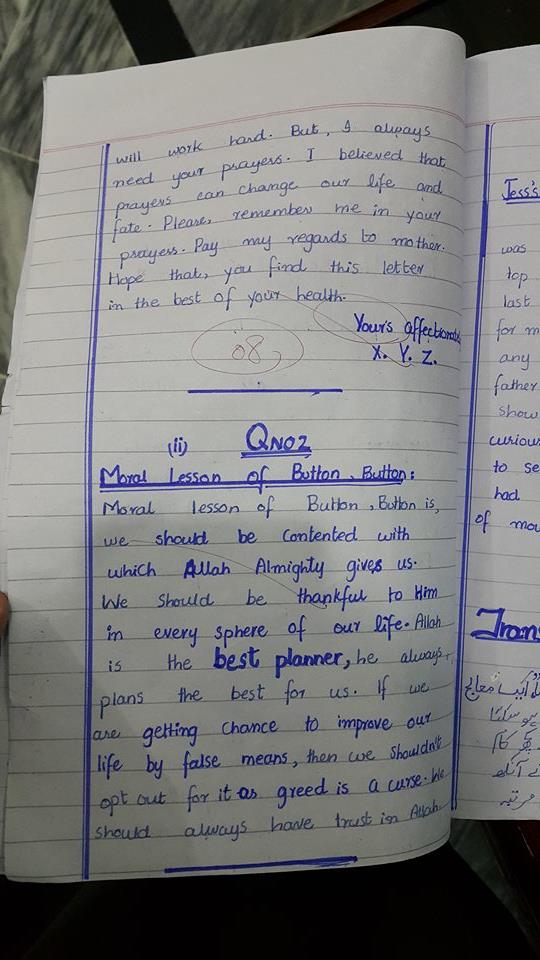 will work hard. But, I always
need your prayers. I believed that
prayers can change our life and
fate. Please, remember me in your
prayers. Pay my regards to mother.
Hope that, you find this letter
in the best of your health.
Your's affectionat
X. Y. Z.
08
(ii) QNO2
Moral Lesson of Button, Button:
Moral lesson of Button, Button is,
we should be contented with
which Allah Almighty gives us.
We should be thankful to Him
in every sphere of our life. Allah
is the best planner, he always
plans the best for us. If we
are getting chance to improve our
life by false means, then we shouldn't
opt out for it as greed is a curse. We
should always have trust in Allah.
Jess's
was
top
last
for m
any
father
show
curious
to se
had
of mou
Trans